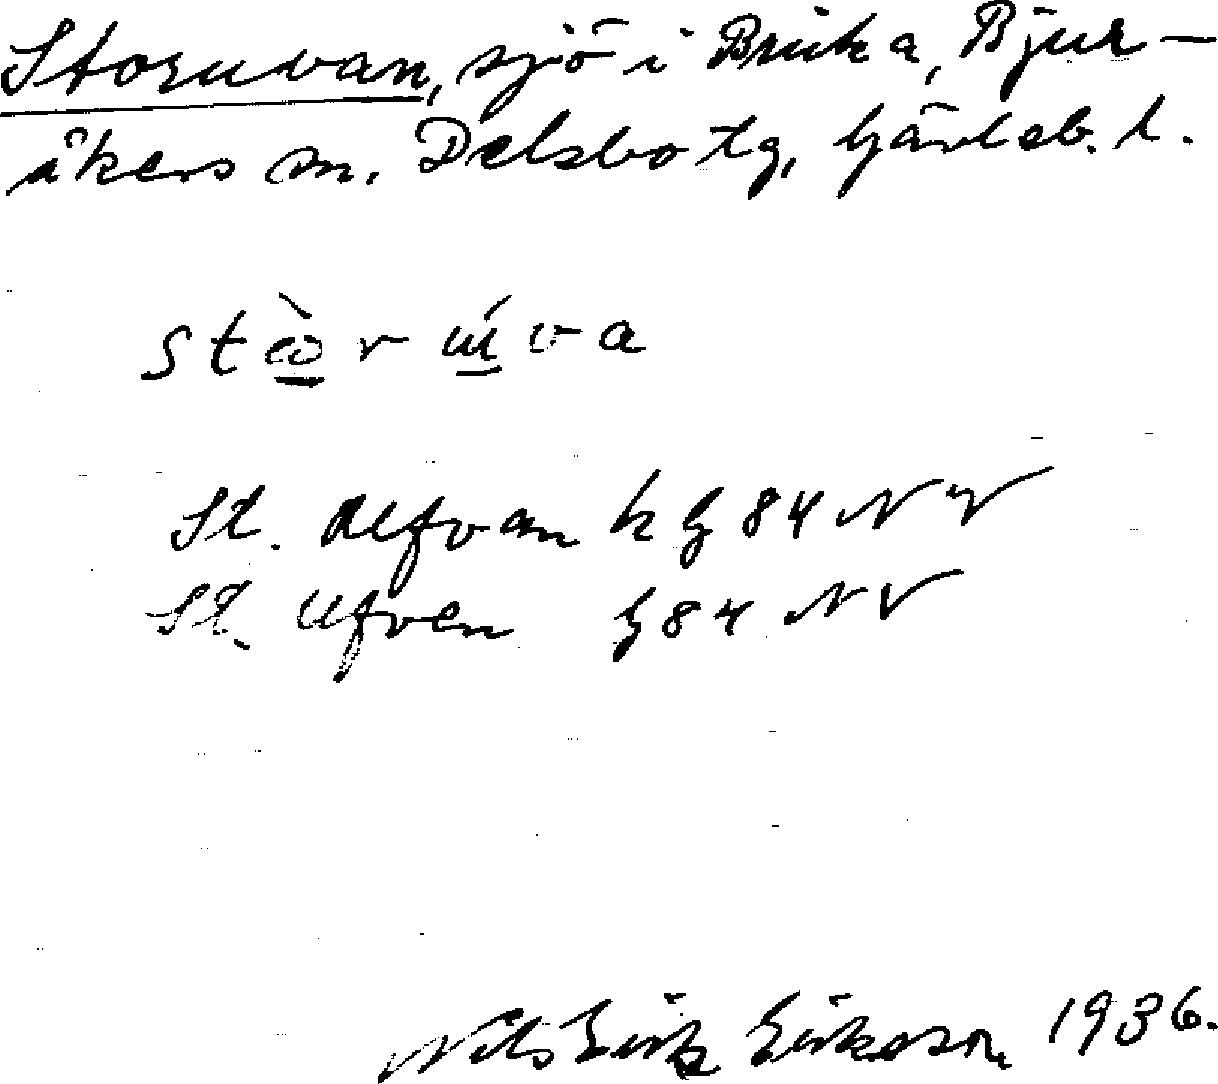 Storuvan, sjö i Bruka, Bjur-
åkers sn. Delsbo tg, Gävleb. l.
stòrúva
St. Ulfvan k G 84 NV
St. Ulfven G 84 NV
Nils Erik Eriksson 1936.